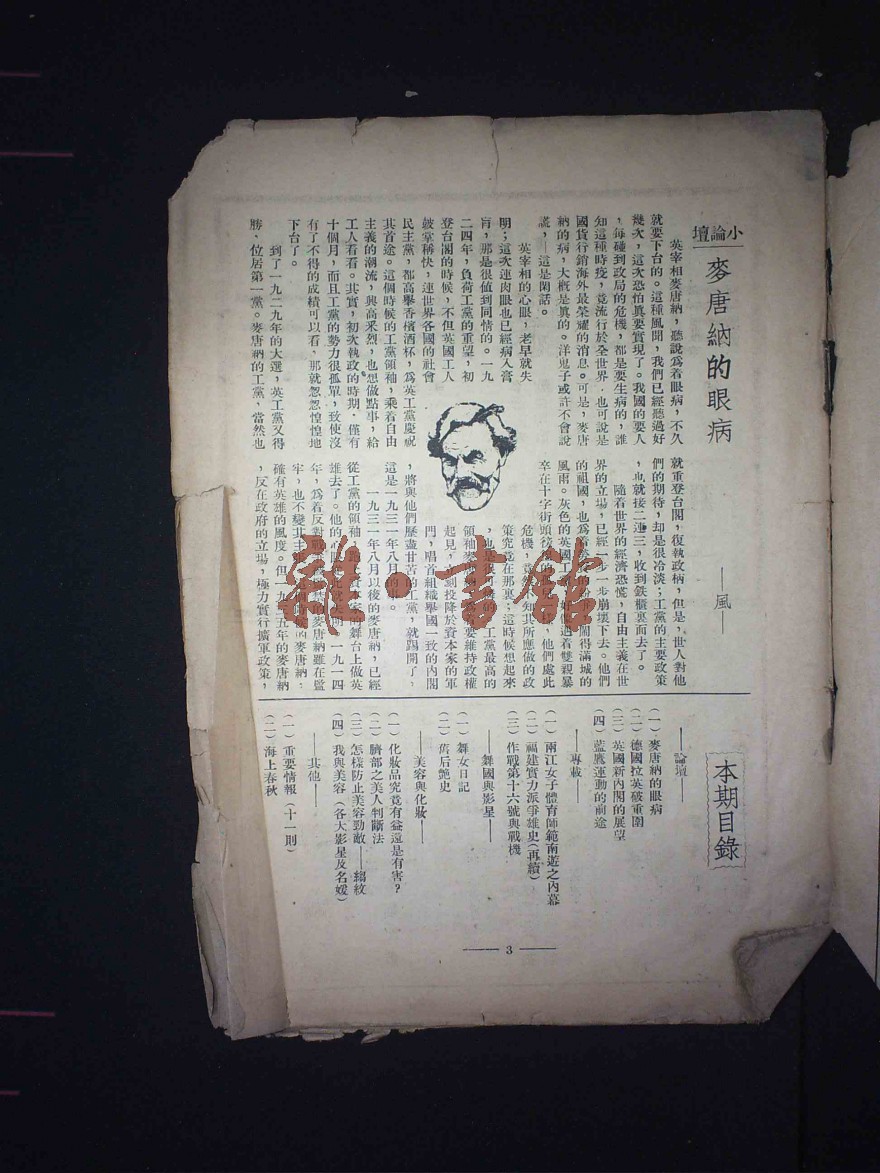 小論壇
麥唐納的眼病
——風——
英宰相麥唐納，聽說爲着眼病，不久
就要下台的。這種風聞，我們已經聽過好
幾次，這次恐怕眞要實現了。我國的要人
，每碰到政局的危機，都是要生病的，誰
知這種時疫，竟流行於全世界，也可說是
國貨行銷海外最榮耀的消息。可是，麥唐
納的病，大槪是眞的。洋鬼子或許不會說
謊，—這是閑話。
英宰相的心眼，老早就失
明；這次連肉眼也已經病入膏
肓，那是很値到同情的。一九
二四年，負荷工黨的重望，初
登台閣的時候，不但英國工人
皷掌稱快，連世界各國的社會
民主黨，都高舉香檳酒杯，爲英工黨慶祝
其首途。這個時候的工黨領袖，乘着自由
主義的潮流，興高釆烈，也想做點事，給
工人看看。其實，初次執政的時期，僅有
十個月，而且工黨的勢力很孤單，致使沒
有了不得的成績可以看，那就忽忽惶惶地
下台了。
到了一九二九年的大選，英工黨又得
勝，位居第一黨。麥唐納的工黨，當然也
就重登台閣，復執政柄，但是，世人對他
們的期待，却是很冷淡；工黨的主要政策
，也就接二連三，收到鉄櫃裏面去了。
隨着世界的經濟恐慌，自由主義在世
界的立場，已經一步一步崩壞下去。他們
的祖國，也爲着
鬧得滿城的
風雨。灰色的英國工
遇着雙親暴
卒在十字街頭
，他們處此
危機，竟然
知其所應做的政
策究竟在那裏；這時候想起來
，也是很可
工黨最高的
領袖麥唐納，爲着要維持政權
起見，立刻投降於資本家的軍
門，唱首組織舉國一致的內閣
，將與他們歷盡甘苦的工黨，就踢開了，
這是一九三一年八月的事。
一九三一年八月以後的麥唐納，已經
從工黨的領袖，
資本家的舞台上做英
雄去了。他的心眼
此就失明
一九一四
年，爲着反對戰
的麥唐納雖在監
牢，也不變其主
這個時候的麥唐納，
確有英雄的風度。但一九三五年的麥唐納
，反在政府的立場，極力實行擴軍政策，
本期目錄
——論壇——
（一）麥唐納的眼病
（二）德國拉英破重圍
（三）英國新內閣的展望
（四）藍鷹運動的前途
——專載——
（一）兩江女子體育師範南遊之內幕
（二）福建實力派爭雄史（再續）
（三）作戰第十六號與戰機
——舞國與影星——
（一）舞女日記
（二）廣后艶史
——美容與化妝——
（一）化妝品究竟有益還是有害？
（二）臍部之美人判斷法
（三）怎樣防止美容勁敵——縐紋
（四）我與美容（各大影星及名媛）
——其他——
（一）重要情報（十一則）
（二）海上春秋
—— 3 ——
雜·書館